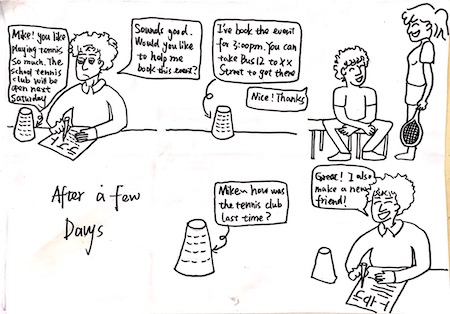 Mike! you like
playing tennis
so much. The
school tennis
club will be
open next
Saturday
Sounds good.
Would you like
to help me
book this event?
I've book the event
for 3:00pm. You can
take Bus 12 to xx
Street to get there
Nice! Thanks
After a few
Days
Mike~ how was
the tennis club
last time?
Great! I also
make a new
friend!